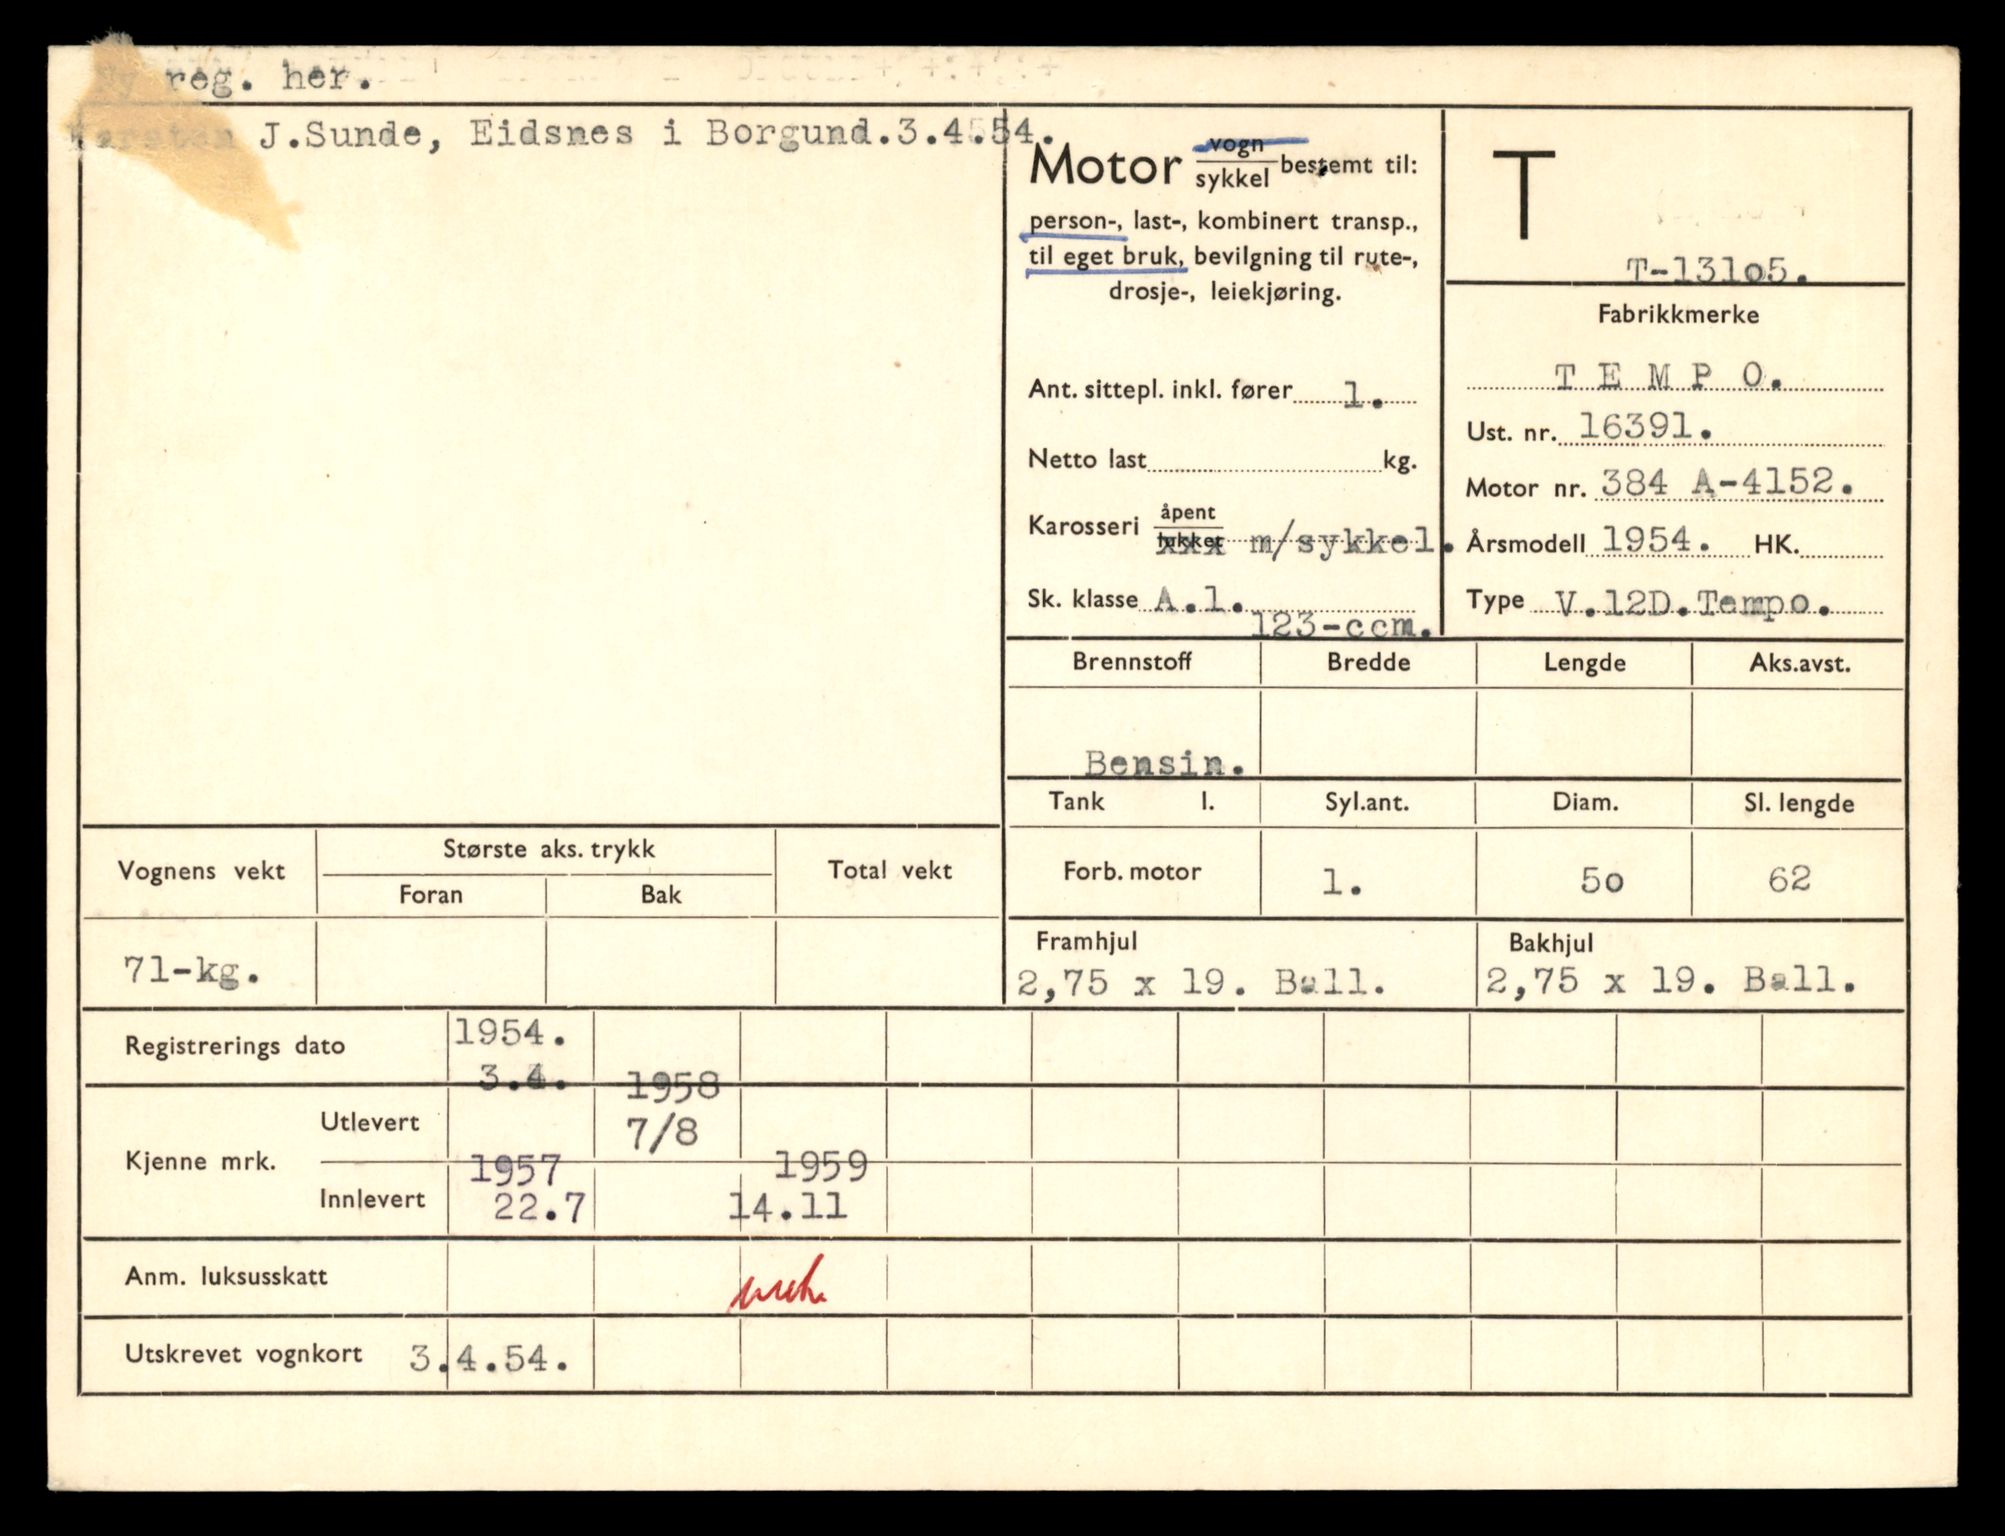 reg. her.
J.Sunde, Eidsnes i Borgund.3.4.54.
Motor vogn/sykkel bestemt til:
person-, last-, kombinert transp.,
til eget bruk, bevilgning til rute-,
drosje-, leiekjøring.
Ant. sittepl. inkl. fører 1.
Netto last kg.
Karosseri åpent/lukket xxx m/sykkel.
Sk. klasse A.1.
123-ccm.
T
T-13105.
Fabrikkmerke
T E M P O.
Ust. nr. 16391.
Motor nr. 384 A-4152.
Årsmodell 1954. HK.
Type V.12D.Tempo.
Brennstoff Bredde Lengde Aks.avst.
Bensin.
Tank l. Syl.ant. Diam. Sl. lengde
Forb. motor 1. 50 62
Framhjul Bakhjul
2,75 x 19. Ball. 2,75 x 19. Ball.
Vognens vekt Største aks. trykk Total vekt
Foran Bak
71-kg.
Registrerings dato 1954.
3.4. 1958
Utlevert 7/8
Kjenne mrk. 1957 1959
Innlevert 22.7 14.11
Anm. luksusskatt
Utskrevet vognkort 3.4.54.